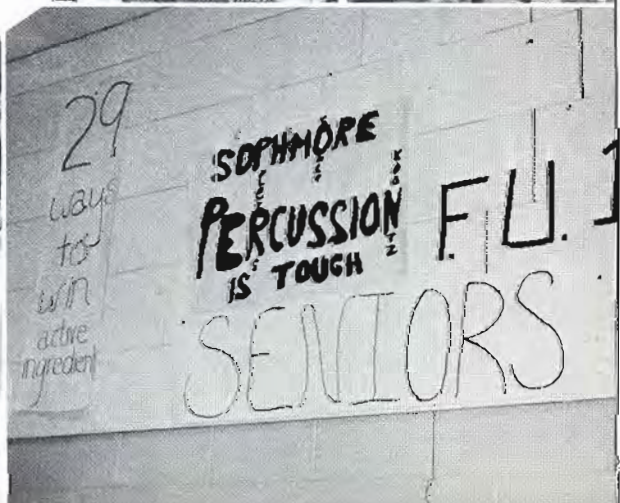 29
ways
to
win
active
ingredient
SOPHMORE
PERCUSSION
IS TOUGH
F.U.
SENIORS